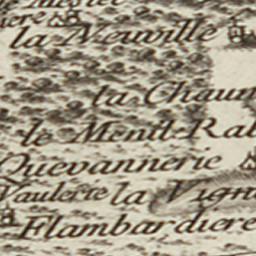 iere
la Neuville
la Chaun
le Menil-Rab
Quevannerie
Vaulerie la Vigne
Flambardiere